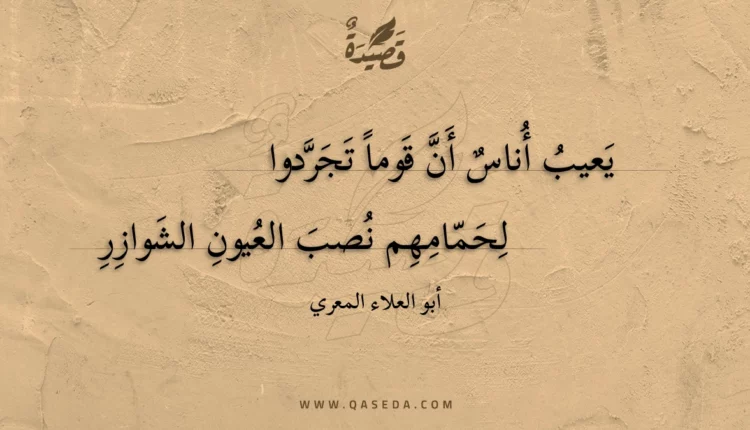 قَصِيْدَةٌ
يَعيبُ أُناسٌ أَنَّ قَوماً تَجَرَّدوا
لِحَمّامِهِم نُصبَ العُيونِ الشَوازِرِ
أبو العلاء المعري
WWW.QASEDA.COM